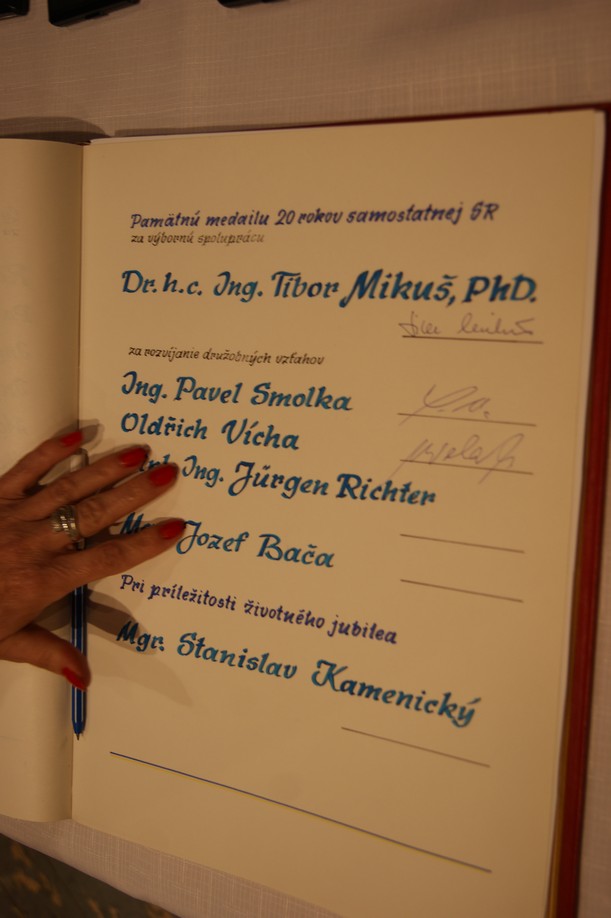 Pamätnú medailu 20 rokov samostatnej SR
za výbornú spoluprácu
Dr. h. c. Ing. Tibor Mikuš, PhD.
za rozvíjanie družobných vzťahov
Ing. Pavel Smolka
Oldřich Vícha
Ing. Jürgen Richter
Jozef Bača
Pri príležitosti životného jubilea
Mgr. Stanislav Kamenický